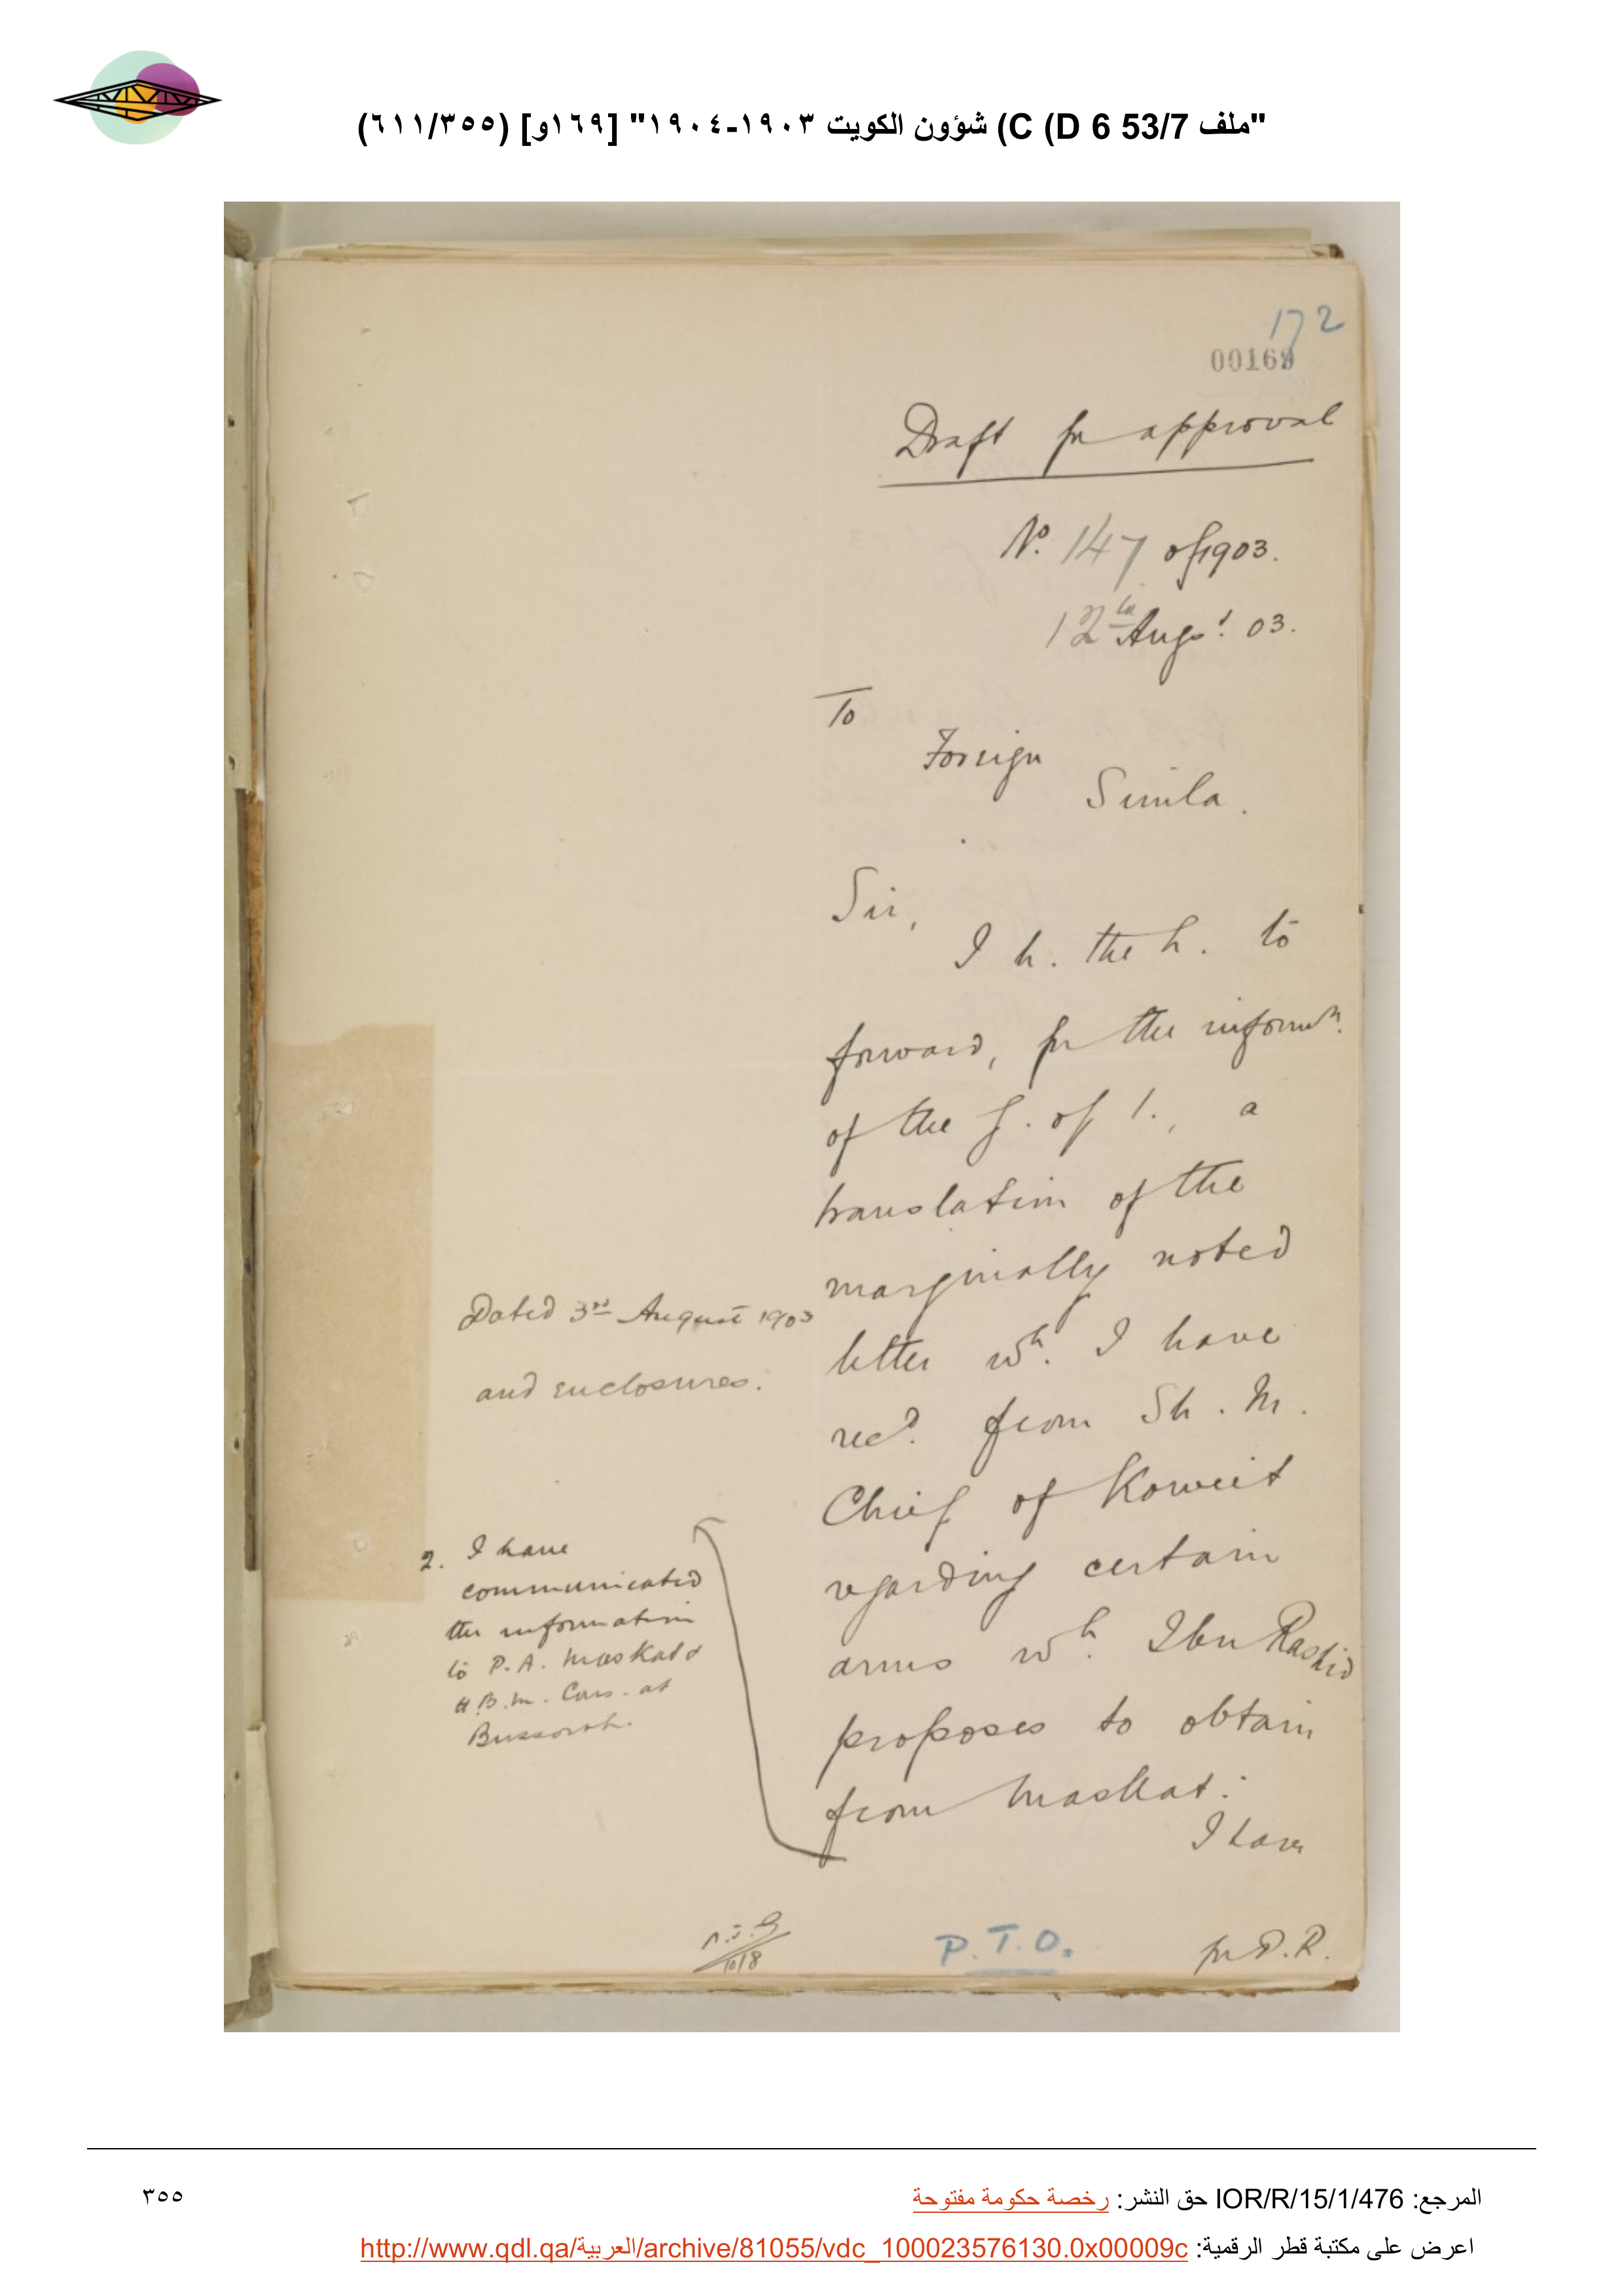 "ملف 53/7 C (D 6) شؤون الكويت ١٩٠٣-١٩٠٤" [١٦٩و] (٦١١/٣٥٥)
172
00169
Draft for approval
No. 147 of 1903.
12th Augst. 03.
To
Foreign
Simla.
Sir,
I h. the h. to
forward, for the informn.
of the G. of I., a
translation of the
marginally noted
letter wh. I have
recd. from Sh. M.
Chief of Koweit
regarding certain
arms wh. Ibn Rashid
proposes to obtain
from Maskat.
I have
Dated 3rd August 1903
and enclosures.
2. I have
communicated
the information
to P.A. Maskat &
H.B.M. Cons. at
Bussorah.
10/8
P.T.O.
for P.R.
المرجع: IOR/R/15/1/476 حق النشر: رخصة حكومة مفتوحة
٣٥٥
اعرض على مكتبة قطر الرقمية: http://www.qdl.qa/العربية/archive/81055/vdc_100023576130.0x00009c